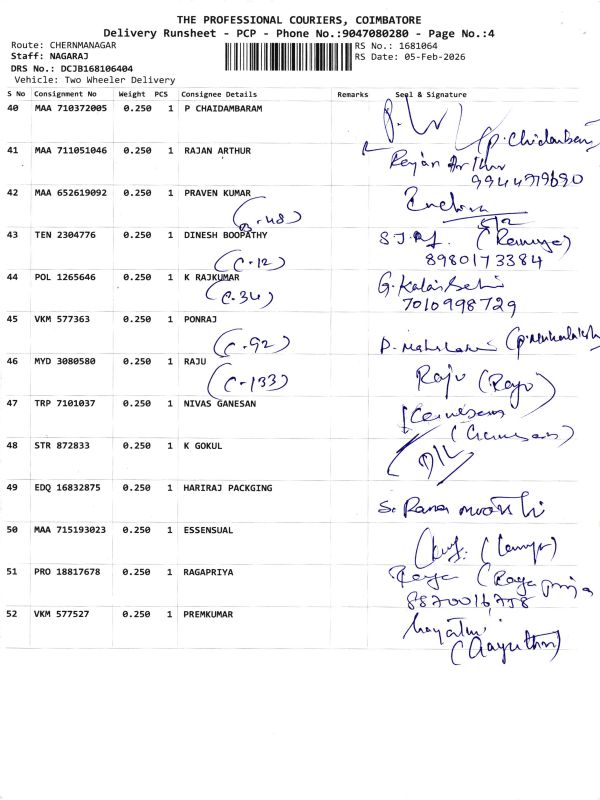 THE PROFESSIONAL COURIERS, COIMBATORE
Delivery Runsheet - PCP - Phone No.:9047080280 - Page No.:4
Route: CHERNMANAGAR
RS No.: 1681064
Staff: NAGARAJ
RS Date: 05-Feb-2026
DRS No.: DCJB168106404
Vehicle: Two Wheeler Delivery
S No Consignment No Weight PCS Consignee Details Remarks Seal & Signature
40 MAA 710372005 0.250 1 P CHAIDAMBARAM
41 MAA 711051046 0.250 1 RAJAN ARTHUR
9944979690
42 MAA 652619092 0.250 1 PRAVEN KUMAR
43 TEN 2304776 0.250 1 DINESH BOOPATHY
(C-12)
8980173384
44 POL 1265646 0.250 1 K RAJKUMAR
(C-34)
7010998729
45 VKM 577363 0.250 1 PONRAJ
(C-92)
46 MYD 3080580 0.250 1 RAJU Raju (Raju)
(C-133)
47 TRP 7101037 0.250 1 NIVAS GANESAN
48 STR 872833 0.250 1 K GOKUL
49 EDQ 16832875 0.250 1 HARIRAJ PACKGING
50 MAA 715193023 0.250 1 ESSENSUAL
51 PRO 18817678 0.250 1 RAGAPRIYA
52 VKM 577527 0.250 1 PREMKUMAR